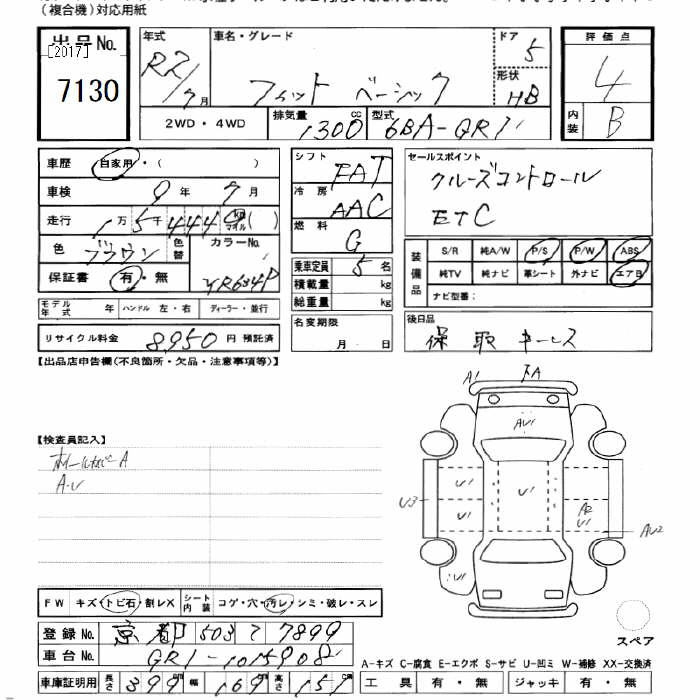 （複合機）対応用紙
出品No.
[2017]
7130
年式
R2/7月
車名・グレード
フィット ベーシック
ドア
5
形状
HB
評価点
4
内装
B
2WD・4WD
排気量
1300cc
型式
6BA-GR1
車歴 自家用・( )
車検 9年7月
走行 1万5千444km マイル( )
色 ブラウン 色替
カラーNo.
YR634P
保証書 有・無
シフト
FAT
冷房
AAC
燃料
G
乗車定員 5名
積載量 kg
総重量 kg
セールスポイント
クルーズコントロール
ETC
装備品
S/R 純A/W P/S P/W ABS
純TV 純ナビ 革シート 外ナビ エアB
ナビ型番：
モデル年式 年 ハンドル 左・右 ディーラー・並行
リサイクル料金 8950円 預託済
名変期限
月 日
後日品
保 取 キーレス
【出品店申告欄(不良箇所・欠品・注意事項等)】
【検査員記入】
ホイールカバーA
A・U
A1
AU1
U1
U1
U1
U3
A2
U1
AU2
U1
FW キズ・トビ石・割レX
シート内装 コゲ・穴・汚レ・シミ・破レ・スレ
登録No. 京都 503 て 7899
車台No. GR1-1015908
車庫証明用 長さ 399cm 幅 169cm 高さ 151cm
スペア
A-キズ C-腐食 E-エクボ S-サビ U-凹ミ W-補修 XX-交換済
工具 有・無 ジャッキ 有・無